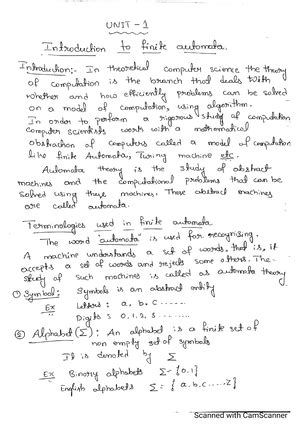 UNIT - 1
Introduction to finite automata.
Introduction:- In theoretical computer science the theory
of computation is the branch that deals with
whether and how efficiently problems can be solved
on a model of computation, using algorithm.
In order to perform a rigorous study of computation
computer scientists work with a mathematical
abstraction of computers called a model of computation
like finite Automata, Turing machine etc.
Automata theory is the study of abstract
machines and the computational problems that can be
solved using these machines. These abstract machines
are called automata.
Terminologies used in finite automata
The word 'automata' is used for recognizing.
A machine understands a set of words, that is, it
accepts a set of words and rejects some others. The
study of such machines is called as automata theory
① Symbol: Symbols is an abstract entity
Ex Letters : a, b, c ......
Digits : 0, 1, 2, 3 ......
② Alphabet (Σ) : An alphabet is a finite set of
non empty set of symbols
It is denoted by Σ
Ex Binary alphabets Σ = {0,1}
English alphabets Σ = {a, b, c.....z}
Scanned with CamScanner